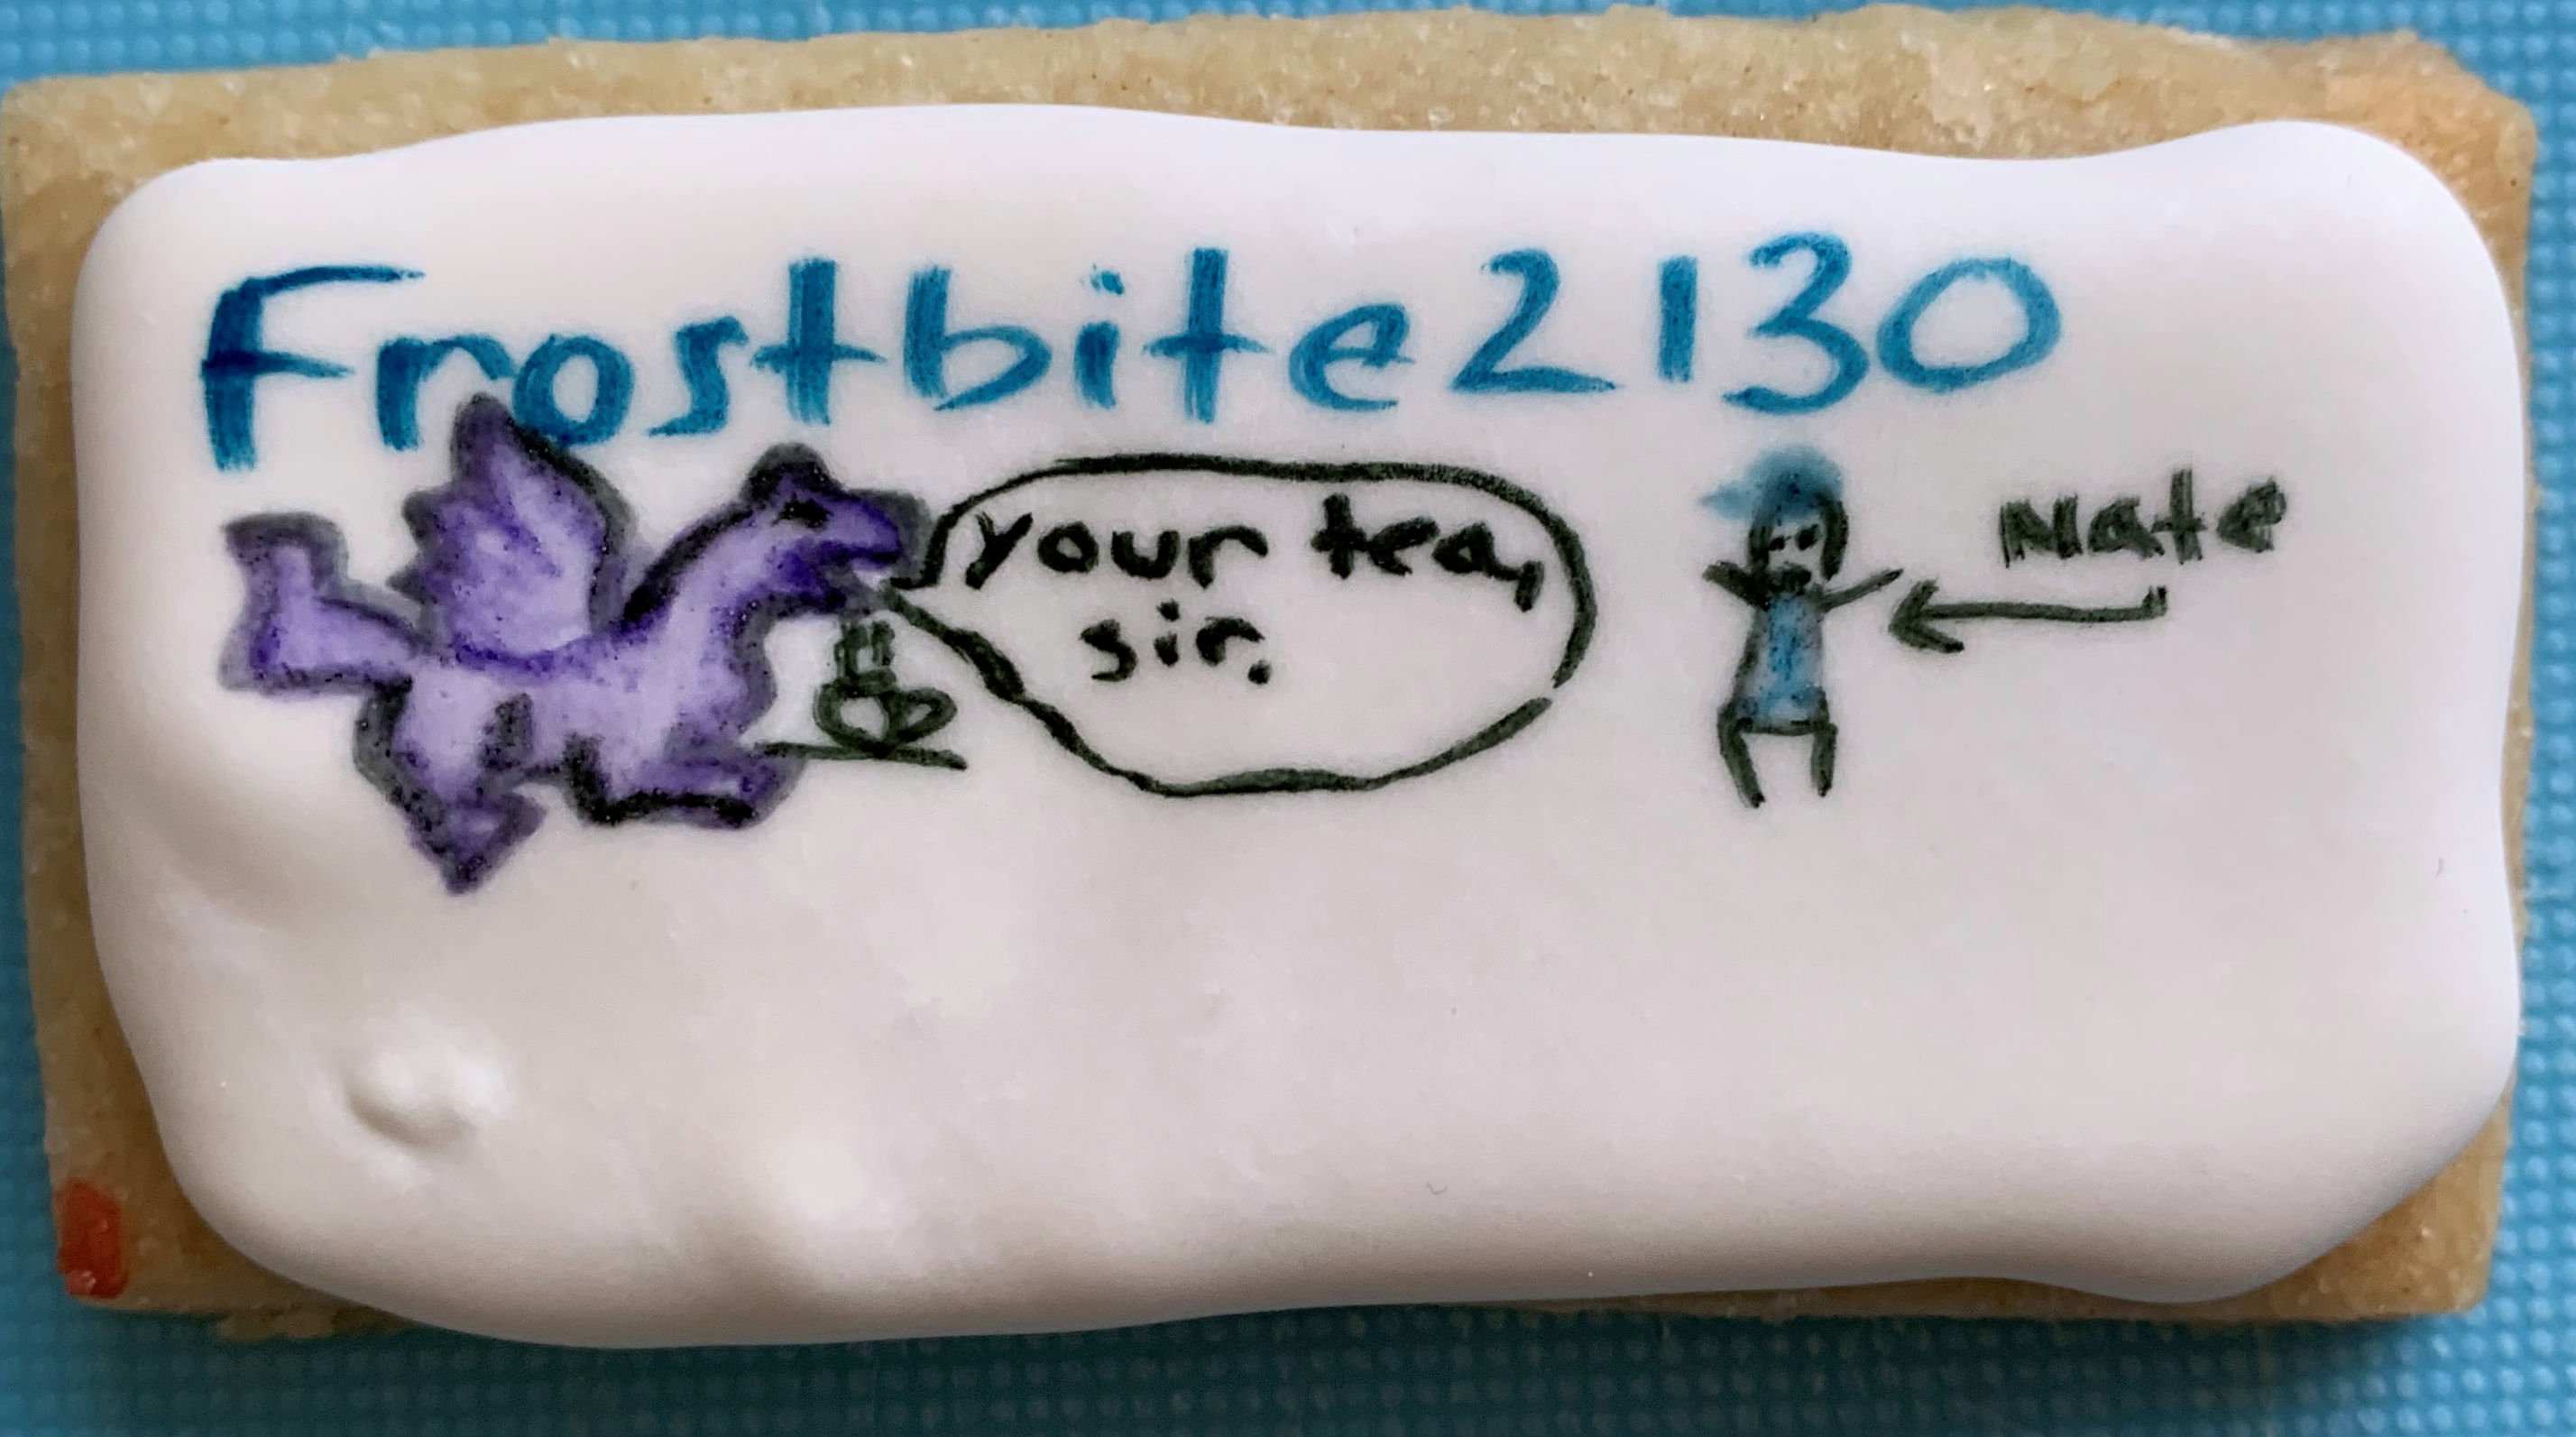 Frostbite2130
your tea,
sir.
Nate